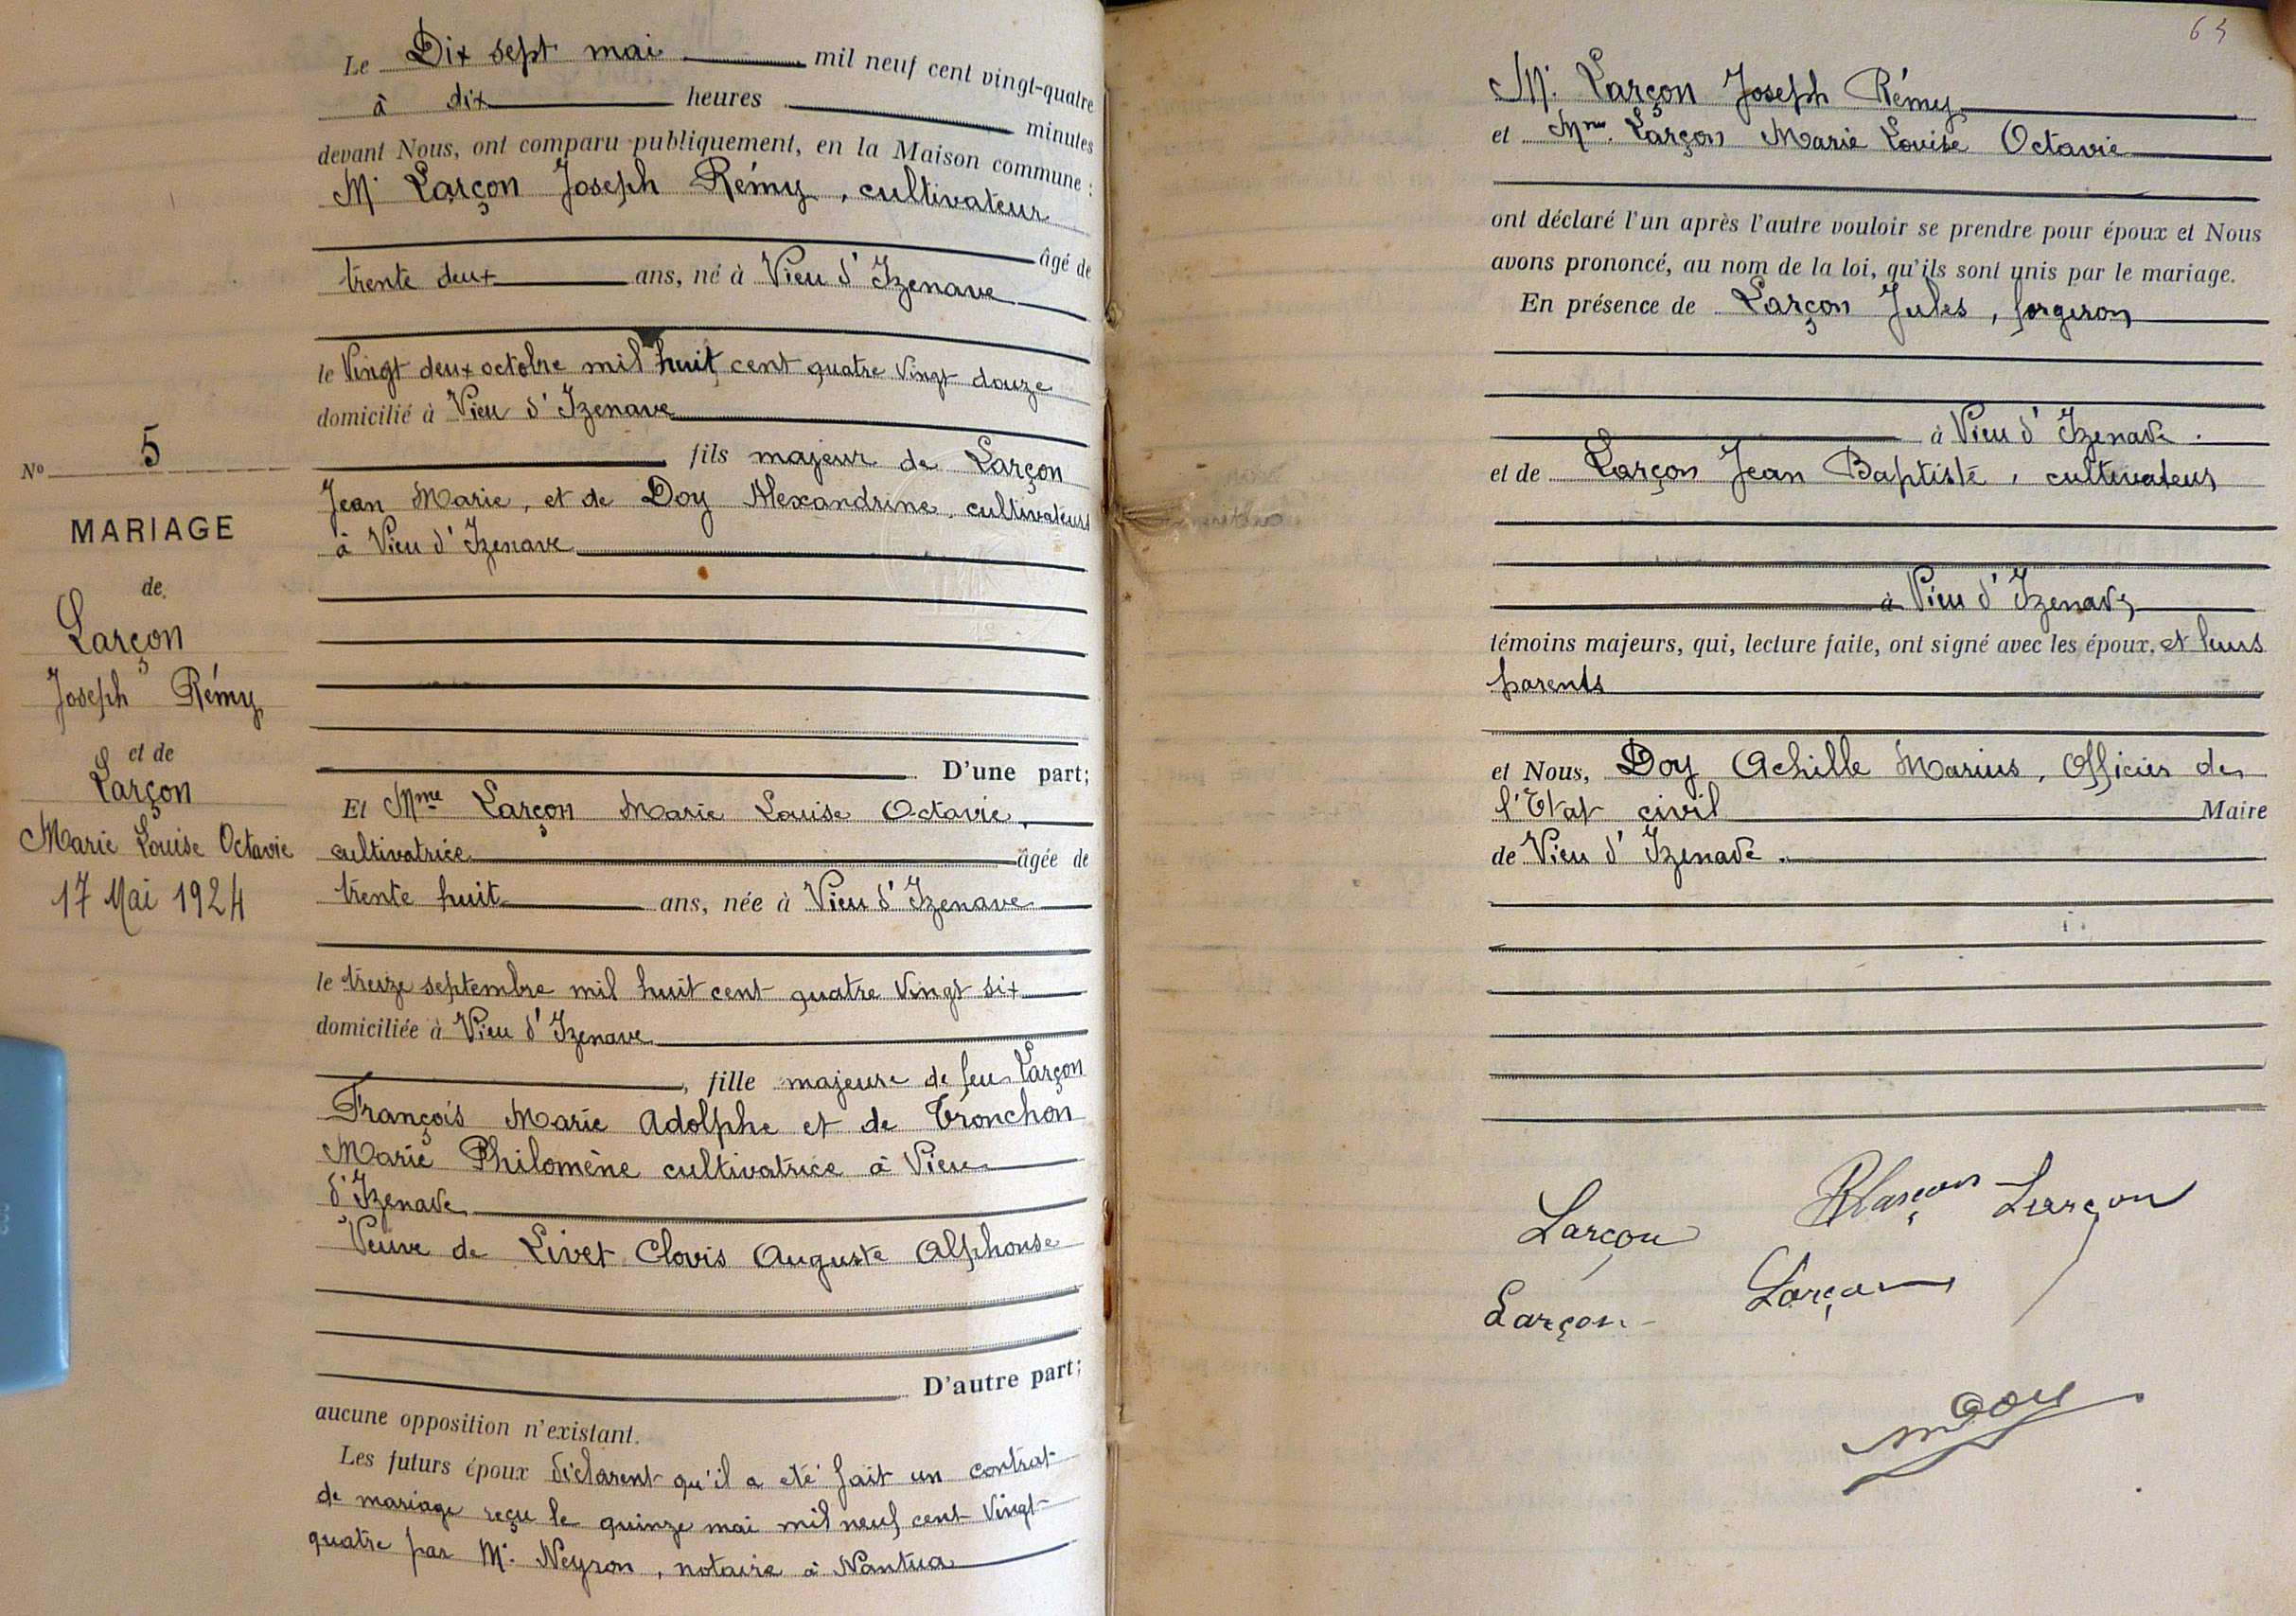 N° 5
MARIAGE
de
Larçon
Joseph Rémy
et de
Larçon
Marie Louise Octavie
17 Mai 1924
Le Dix sept mai mil neuf cent vingt-quatre
à dix heures minutes
devant Nous, ont comparu publiquement, en la Maison commune :
Mr Larçon Joseph Rémy, cultivateur
âgé de
trente deux ans, né à Vieu d'Izenave
le Vingt deux octobre mil huit cent quatre vingt douze
domicilié à Vieu d'Izenave
fils majeur de Larçon
Jean Marie, et de Doy Alexandrine, cultivateurs
à Vieu d'Izenave
D'une part;
Et Mme Larçon Marie Louise Octavie,
cultivatrice âgée de
trente huit ans, née à Vieu d'Izenave
le treize septembre mil huit cent quatre vingt six
domiciliée à Vieu d'Izenave
, fille majeure de feu Larçon
François Marie Adolphe et de Tronchon
Marie Philomène cultivatrice à Vieu
d'Izenave
Veuve de Livet Clovis Auguste Alphonse
D'autre part;
aucune opposition n'existant.
Les futurs époux déclarent qu'il a été fait un contrat
de mariage reçu le quinze mai mil neuf cent vingt
quatre par Me Neyron, notaire à Nantua
Mr Larçon Joseph Rémy
et Mme Larçon Marie Louise Octavie
ont déclaré l'un après l'autre vouloir se prendre pour époux et Nous
avons prononcé, au nom de la loi, qu'ils sont unis par le mariage.
En présence de Larçon Jules, forgeron
à Vieu d'Izenave.
et de Larçon Jean Baptiste, cultivateur
à Vieu d'Izenave
témoins majeurs, qui, lecture faite, ont signé avec les époux, et leurs
parents
et Nous, Doy Achille Marius, Officier de
l'Etat civil Maire
de Vieu d'Izenave.
Larçon Larçon Larçon
Larçon Larçon
MDoy